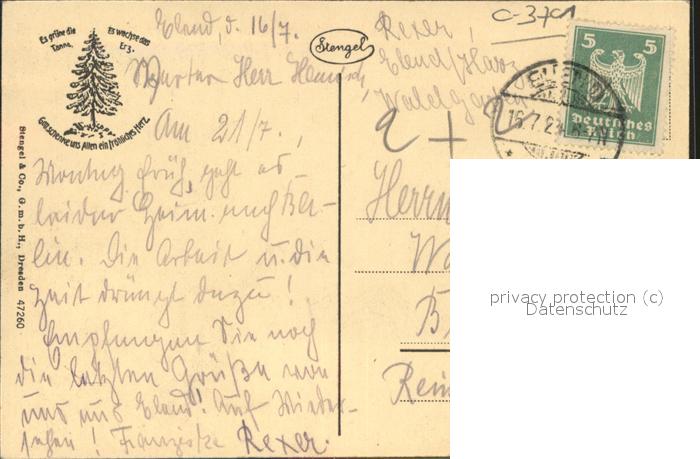 Es grüne die Tanne,
Es wachse das Erz.
Gott schenke uns Allen ein fröhliches Herz.
Stengel & Co., G. m. b. H., Dresden 47260
Stengel
Elend, d. 16/7.
Werter Herr
Am 21/7.,
Montag früh, geht es
leider heim nach Ber-
lin. Die Arbeit u. die
Zeit drängt dazu!
Empfangen Sie noch
die letzten Grüße von
uns aus Elend! Auf Wieder-
sehen! Franziska Rexer.
C-3701
Rexer,
Elend/Harz
Waldgarten
Herrn
W
B
Rein
5 5
Deutsches
Reich
16.7.2
privacy protection (c)
Datenschutz